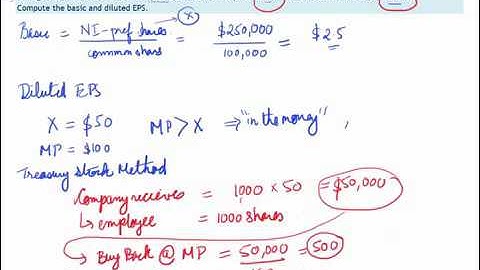 Compute the basic and diluted EPS.
x
Basic = NI-pref shares / common shares = $250,000 / 100,000 = $2.5
Diluted EPS
X = $50 MP > X ⇒ "in the money",
MP = $100
Treasury Stock Method
Company recieves = 1000 × 50 = $50,000
↳ employee = 1000 shares
→ Buy Back @ MP = 50,000 = 500